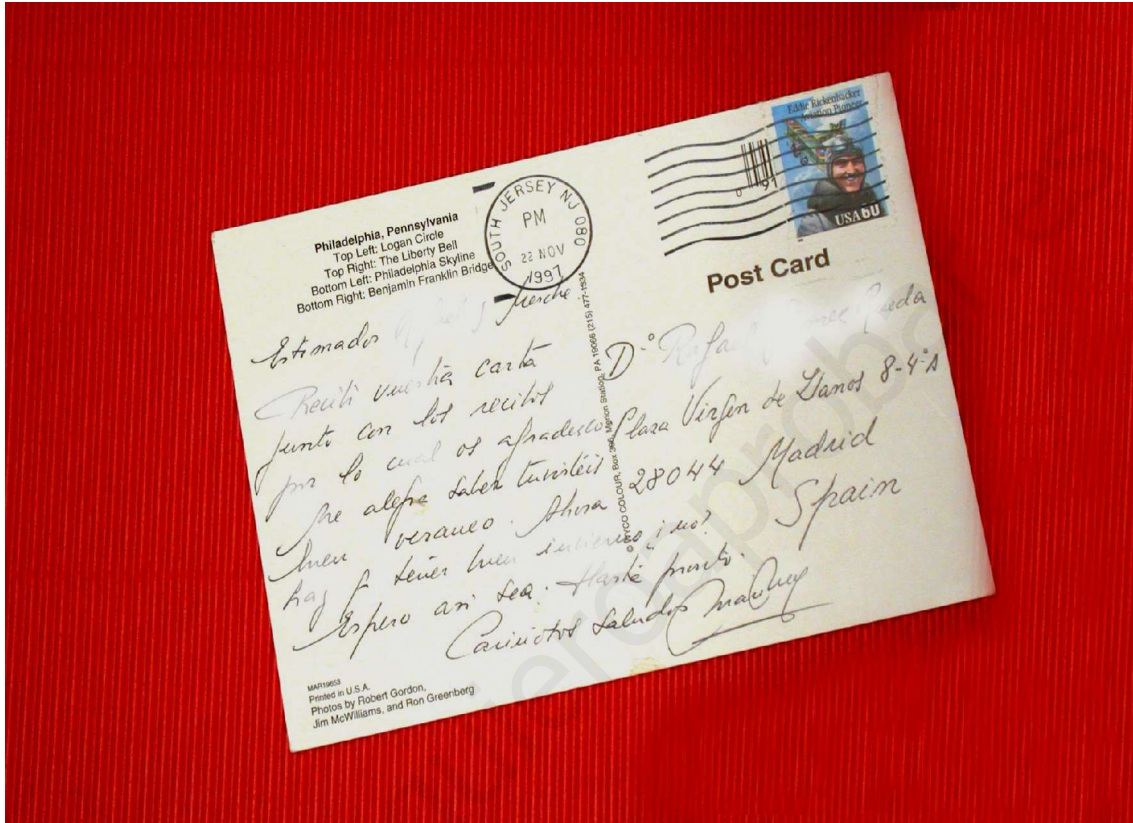 Philadelphia, Pennsylvania
Top Left: Logan Circle
Top Right: The Liberty Bell
Bottom Left: Philadelphia Skyline
Bottom Right: Benjamin Franklin Bridge
SOUTH JERSEY NJ 080
PM
22 NOV
1997
Eddie Rickenbacker
Aviation Pioneer
USA 60
Post Card
Estimados y Merche
Recibí vuestra carta
junto con los recibos
por lo cual os agradezco
Me alegra saber tuvisteis
buen veraneo. Ahora
hay q tener buen invierno ¿no?
Espero así sea. Hasta pronto.
Cariñosos saludos
D.º Rafael Rueda
Plaza Virgen de Llanos 8-4ºA
28044 Madrid
Spain
COLOUR, Box Station, PA 19066 (215) 477-1534
MAR19653
Printed in U.S.A.
Photos by Robert Gordon,
Jim McWilliams, and Ron Greenberg